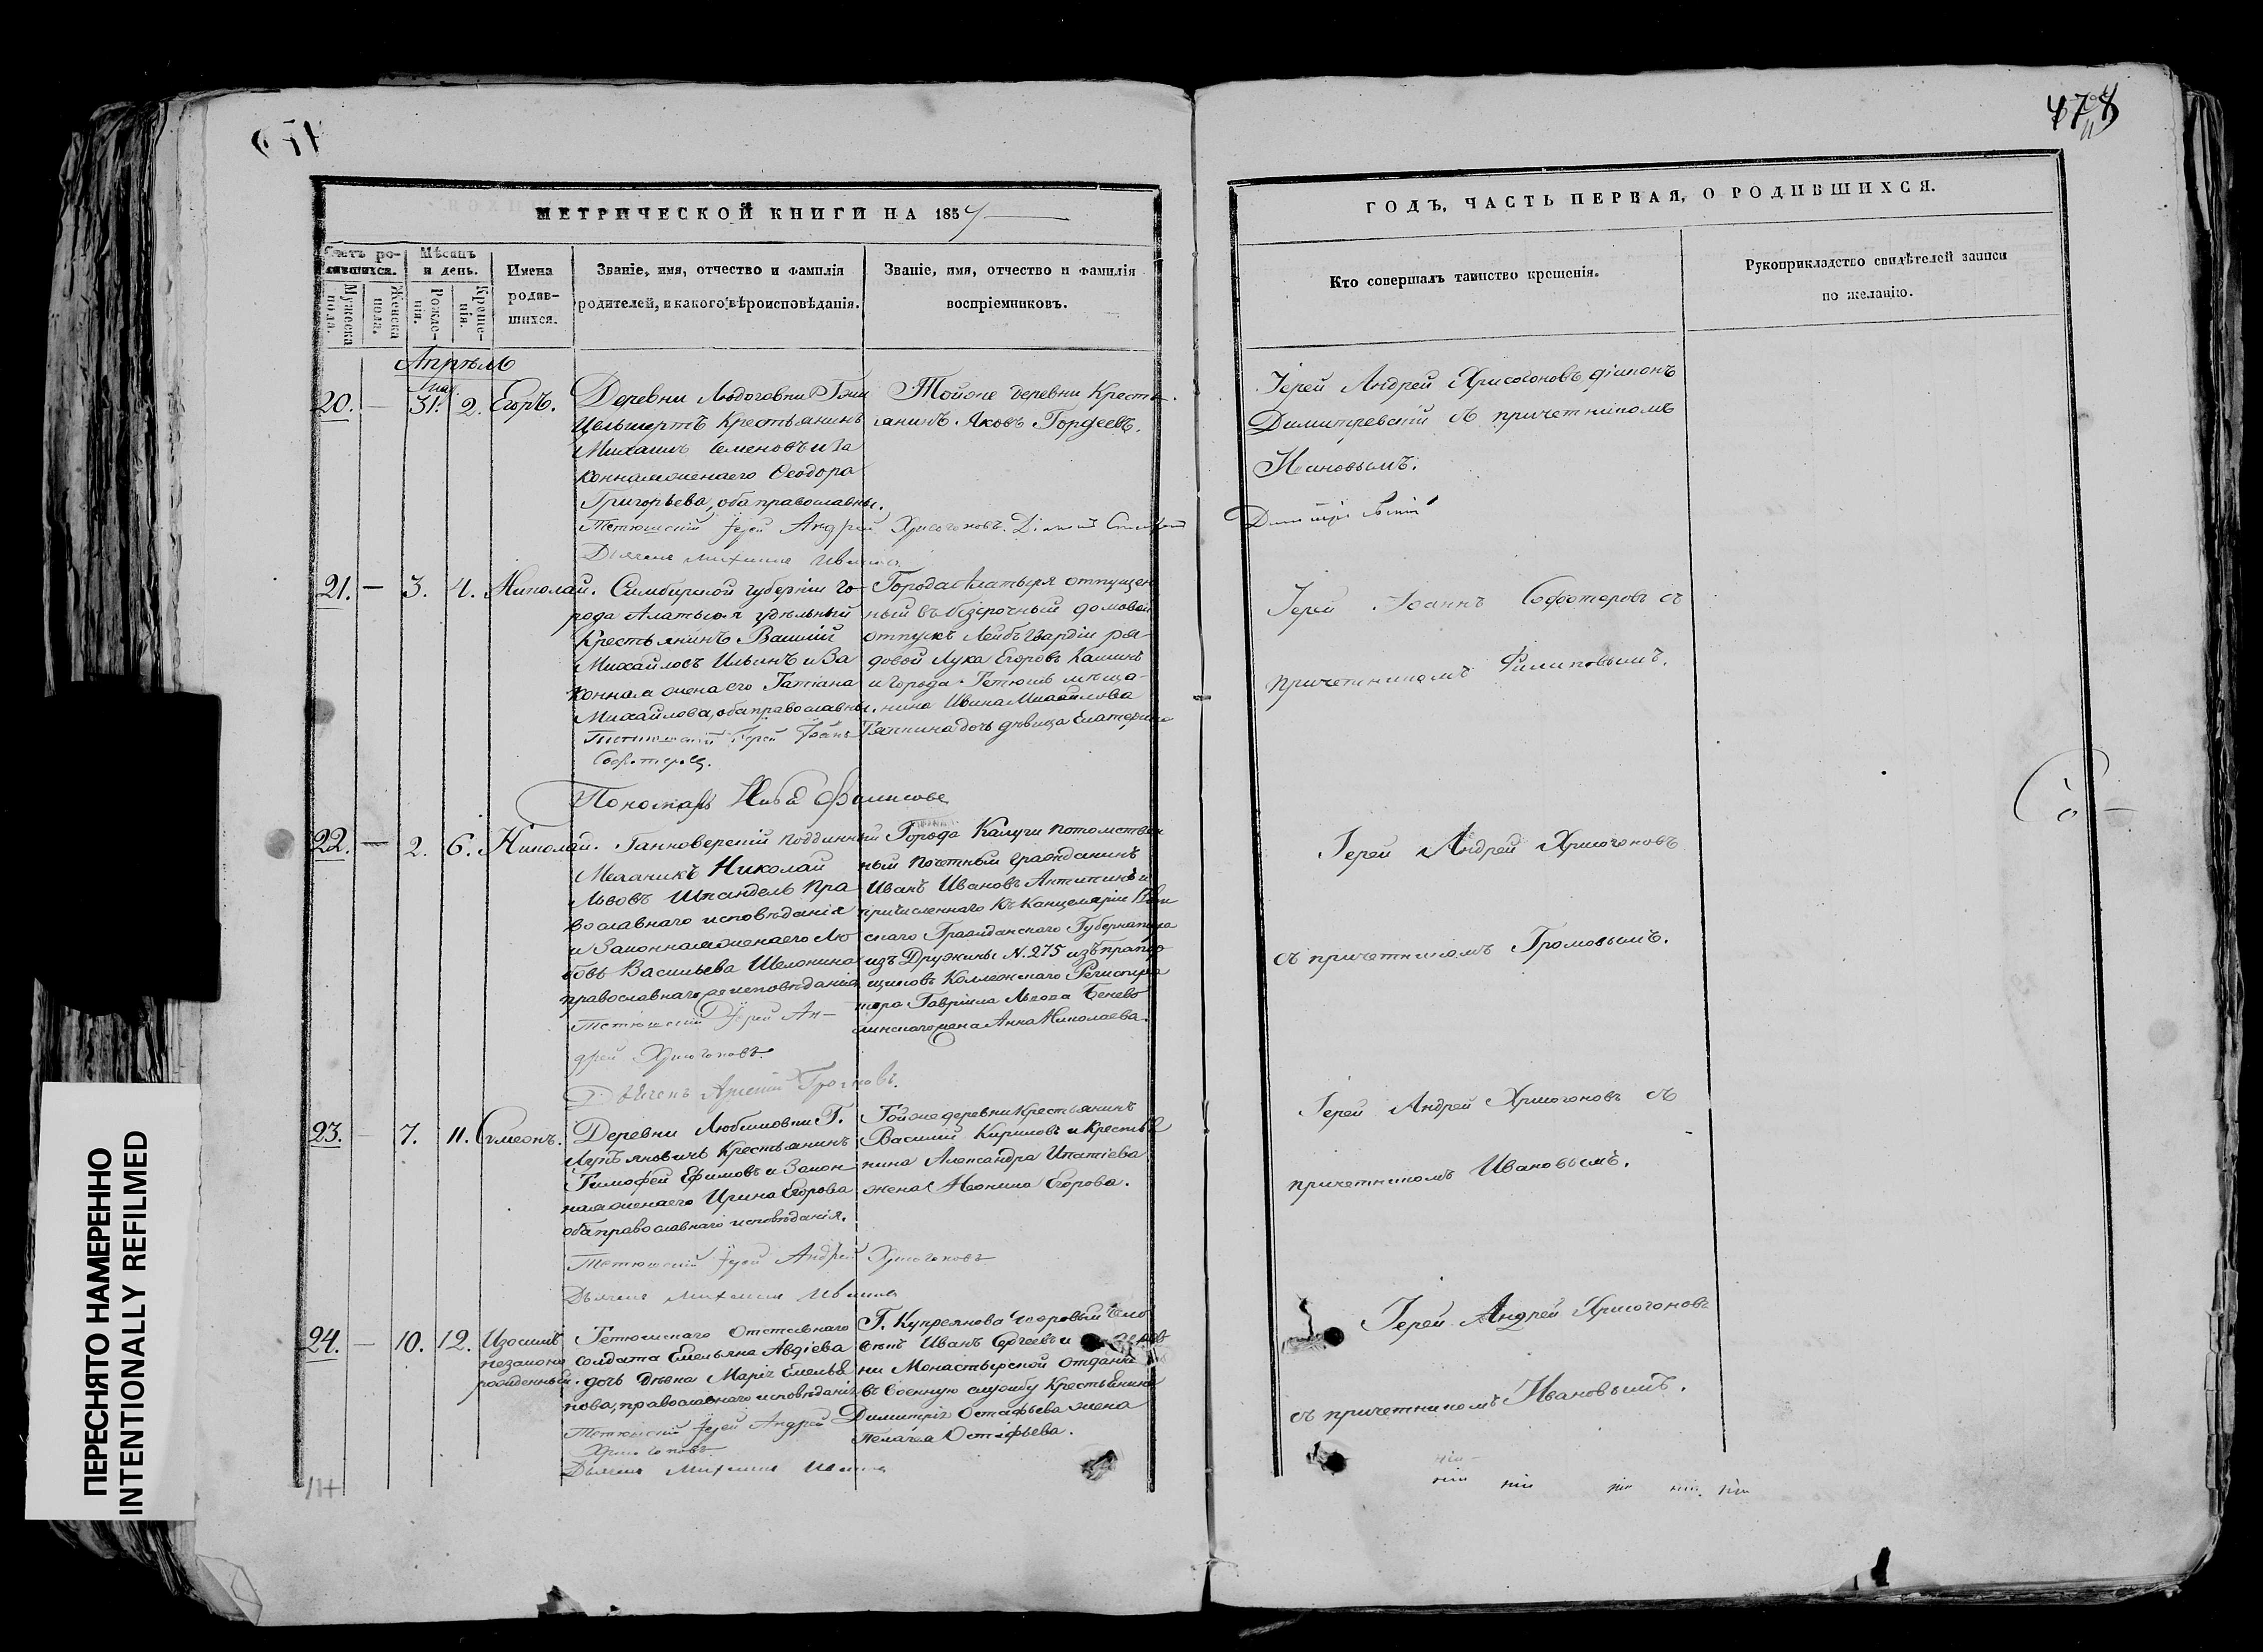 478
МЕТРИЧЕСКОЙ КНИГИ НА 1857
Счетъ ро-
дившихся.
Мужеска
пола.
Женска
пола.
Мѣсяцъ
и день.
Рожде-
нія.
Креще-
нія.
Имена
родив-
шихся.
Званіе, имя, отчество и фамилія
родителей, и какого вѣроисповѣданія.
Званіе, имя, отчество и фамилія
воспріемниковъ.
Апрѣль
20. — 31. 2. Егоръ.
Деревни
Крестьянинъ
Михаилъ Семеновъ и За
конная жена его Ѳеодора
Григорьева, оба православны.
Тетюшскій Іерей Андрей Хрисогоновъ.
Дьячекъ Михаилъ Ивановъ
Тойже деревни Кресть
янинъ Яковъ Гордеевъ.
21. — 3. 4. Николай.
Симбирской губерніи го-
рода Алатыря удѣльный
Крестьянинъ Василій
Михайловъ Ильинъ и За
конная жена его Татіана
Михайлова, оба православны.
Тетюшскій Іерей Іоаннъ
Пономарь
Города Алатыря отпущен
ный въ безсрочный домовой
отпускъ Лейбъ Гвардіи ря-
довой Лука Егоровъ Кашинъ
и города Тетюшъ мѣща-
нина Ивана Михайлова
дочь дѣвица Екатерина
22. — 2. 6. Николай.
Ганноверскій подданный
Механикъ Николай
Львовъ Шпандель пра
вославнаго исповѣданія
и Законная жена его Лю
бовь Васильева Шелонина
православнаго исповѣданія
Тетюшскій Іерей Ан-
дрей Хрисогоновъ.
Дьячекъ Арсеній Громовъ.
Города Калуги потомствен
ный почетный гражданинъ
Иванъ Ивановъ Антипинъ и
причисленнаго къ Канцеляріи
скаго Гражданскаго Губернатора
изъ Дружины N. 275 изъ прапор
щиковъ Коллежскаго Регистра
тора Гавріила Львова
жена Анна Николаева.
23. — 7. 11. Симеонъ.
Деревни Любимовки Г.
Крестьянинъ
Тимофей Ефимовъ и Закон
ная жена его Ирина Егорова
оба православнаго исповѣданія.
Тетюшскій Іерей Андрей Хрисогоновъ
Дьячекъ Михаилъ Ивановъ
Тойже деревни Крестьянинъ
Василій Кириловъ и Крестья
нина Александра Ипатіева
жена Неонила Егорова.
24. — 10. 12. Изосимъ
незаконно
рожденный.
Тетюшскаго Отставнаго
солдата Емельяна Авдіева
дочь дѣвка Марія Емелья
нова, православнаго исповѣданія
Тетюшскій Іерей Андрей
Хрисогоновъ
Дьячекъ Михаилъ Ивановъ
Г. Купреянова дворовый чело
вѣкъ Иванъ Сергеевъ и
ни Монастырской отданна
въ военную службу Крестьянина
Димитрія Остафьева жена
Пелагея Остафьева.
ГОДЪ, ЧАСТЬ ПЕРВАЯ, О РОДИВШИХСЯ.
Кто совершалъ таинство крещенія.
Рукоприкладство свидѣтелей записи
по желанію.
Іерей Андрей Хрисогоновъ діаконъ
Димитревскій съ причетникомъ
Ивановымъ.
Іерей Іоаннъ Софотеровъ съ
причетникомъ Филиповымъ.
Іерей Андрей Хрисогоновъ
съ причетникомъ Громовымъ.
Іерей Андрей Хрисогоновъ съ
причетникомъ Ивановымъ.
Іерей Андрей Хрисогоновъ
съ причетникомъ Ивановымъ.
ПЕРЕСНЯТО НАМЕРЕННО
INTENTIONALLY REFILMED